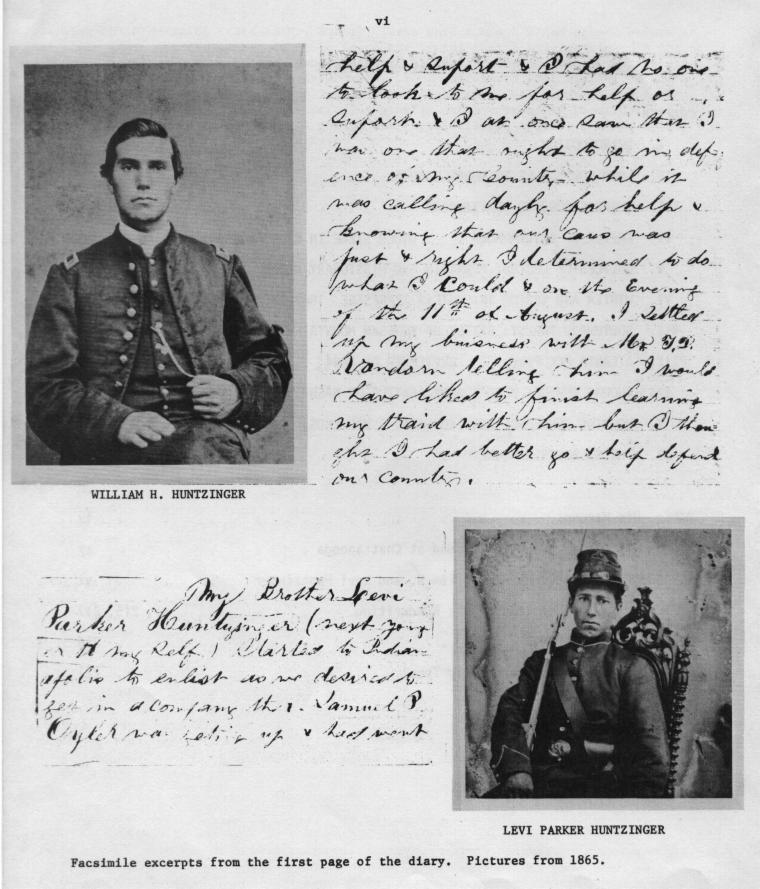 vi
help & suport & I had no one
to look to me for help or
suport & I at once saw that I
was one that ought to go in def
ence of my Country while it
was calling dayly for help &
knowing that our caus was
just & right I determined to do
what I could & on the Evening
of the 11th of August. I settled
up my buisness with Mr
Vandorn telling him I would
have liked to finish learning
my traid with him but I thou
ght I had better go & help defend
our Country.
WILLIAM H. HUNTZINGER
My Brother Levi
Parker Huntzinger (next
to my self) Started to Indian
apolis to enlist as we desired to
get in a company Samuel P.
Oyler was geting up & had went
LEVI PARKER HUNTZINGER
Facsimile excerpts from the first page of the diary. Pictures from 1865.